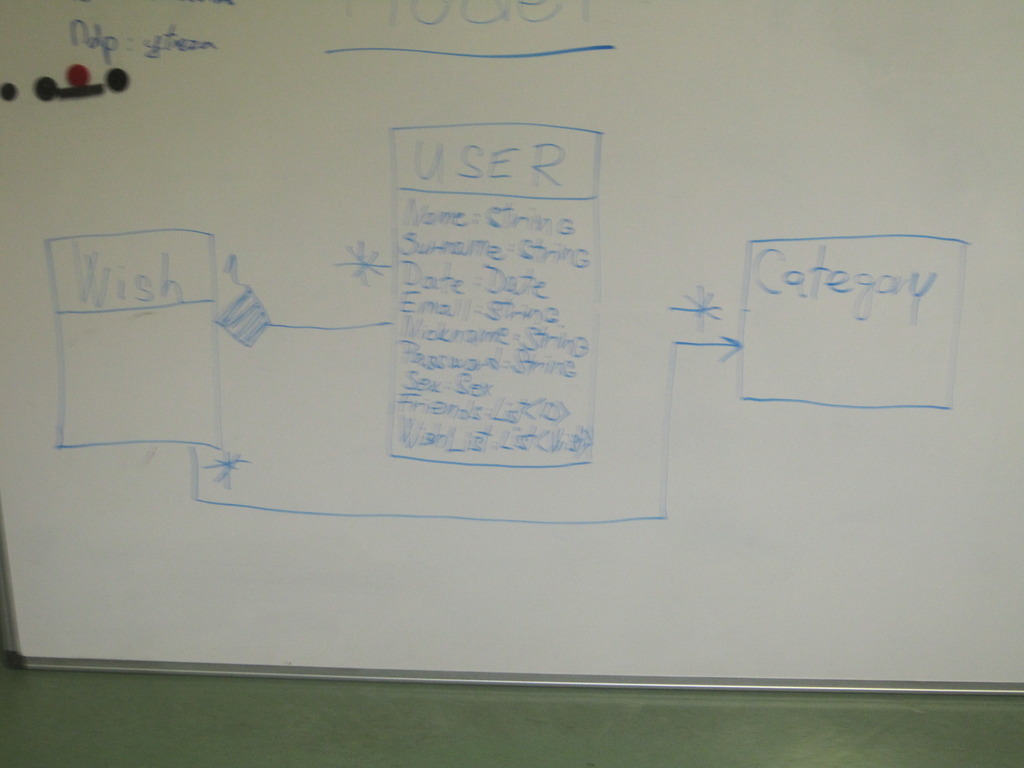 Model
Mdp:
USER
Name: String
Surname: String
Date: Date
Email: String
Nickname: String
Password: String
Sex: Sex
Friends: List<ID>
WishList: List<Wish>
Wish
1
*
*
*
Category